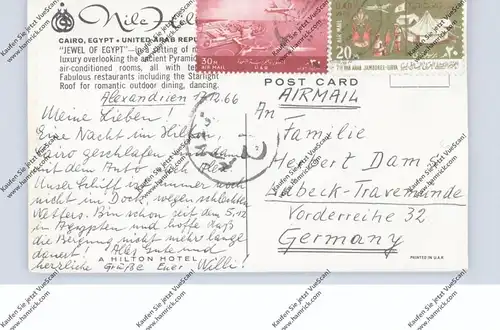 Nile Hilton
CAIRO, EGYPT • UNITED ARAB REPUBLIC
"JEWEL OF EGYPT"—in a setting of
luxury overlooking the ancient Pyramids
air-conditioned rooms, all with
Fabulous restaurants including the Starlight
Roof for romantic outdoor dining, dancing.
30M
AIR MAIL
U.A.R.
20
AIR MAIL
POST CARD
AIRMAIL
Alexandrien 17.12.66
Meine Lieben!
Eine Nacht im Hilton,
Cairo geschlafen,
mit dem Auto nach Alex.
Unser Schiff ist immer noch
nicht im Dock wegen schlechten
Wetters. Bin schon seit dem 5.12
in Aegypten und hoffe daß
die Bergung nicht mehr lange
dauert! Alles Gute und
herzliche Grüße Euer Willi!
A HILTON HOTEL
An
Familie
Herbert Dams
Lübeck-Travemünde
Vorderreihe 32
Germany
PRINTED IN U.A.R.
Kaufen Sie jetzt VueScan!
www.hamrick.com